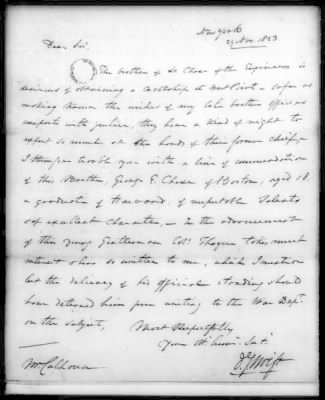 New York
29 Nov. 1823
Dear Sir.
The brother of Lt Chase of the Engineers is
desirous of obtaining a Cadetship at West Point – so far as
making known the wishes of my late brother officers
comports with justice, they have a kind of right to
expect so much at the hands of their former chief,
I therefore trouble you with a line of commendation
of this Brother, George E. Chase of Boston, aged 18
a graduate of Harvard, of respectable Talents
& of excellent Character, – In the advancement
of this young Gentleman Col. Thayer takes much
interest & has so written to me, which I mention
lest the delicacy of his official standing should
have deterred him from writing to the War Dept.
on the subject,
Most Respectfully
Your Ob. Servt.
J. G. Swift
Mr Calhoun